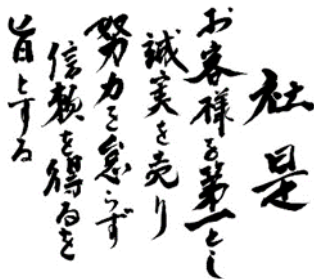 社是
お客様を第一とし
誠実を売り
努力を怠らず
信頼を得るを
旨とする